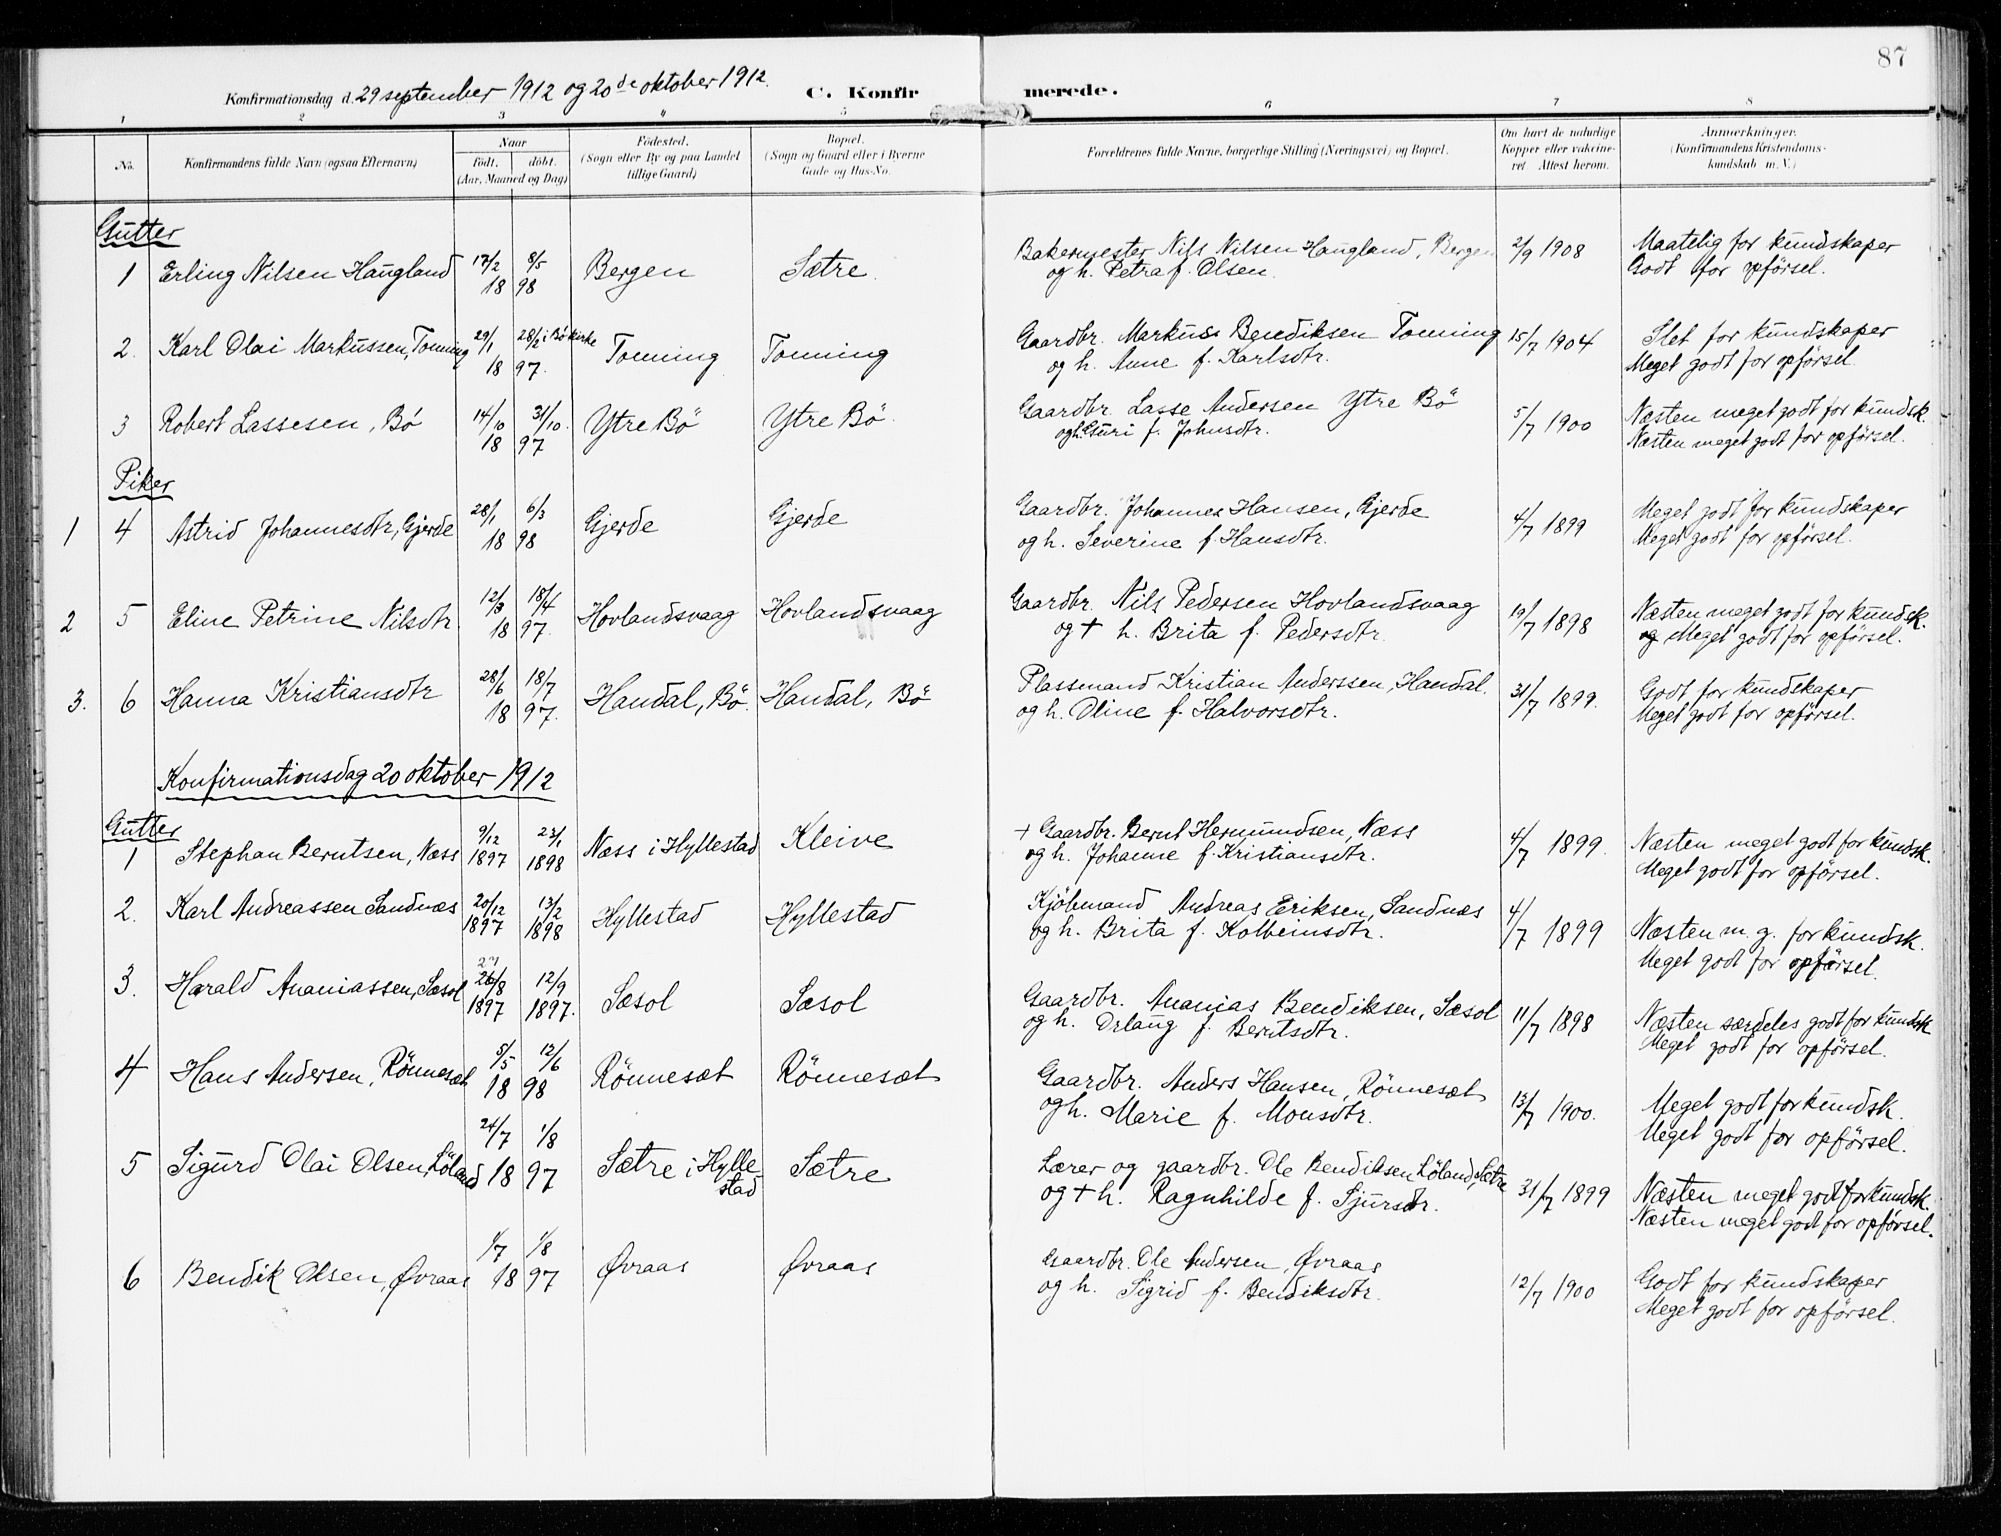 87
Konfirmationsdag d. 29 september 1912 og 20de oktober 1912. C. Konfirmerede.
1 2 3 4 5 6 7 8
No. Konfirmandens fulde Navn (ogsaa Efternavn) Naar født, døbt. (Aar, Maaned og Dag) Fødested. (Sogn eller By og paa Landet tillige Gaard) Bopæl. (Sogn og Gaard eller i Byerne Gade og Hus-No. Forældrenes fulde Navne, borgerlige Stilling (Næringsvei) og Bopæl. Om havt de naturlige Kopper eller vakcineret Attest herom. Anmærkninger. (Konfirmandens Kristendomskundskab m. V.)
Gutter
1 Erling Nilsen Haugland 17/2 8/5 Bergen Sætre. Bakermester Nils Nilsen Haugland, Bergen 2/9 1908 Maatelig for kundskaper
18 98 og h. Petra f. Olsen. Godt for opførsel.
2. Karl Olai Markussen, Tonning 29/1 28/2 i Bø kirke Tonning Tonning Gaardbr. Markus Bendiksen Tonning 15/7 1904 Slet for kundskaper
18 97. og h. Anne f. Karlsdtr. Meget godt for opførsel.
3 Robert Lassesen, Bø 14/10 31/10. Ytre Bø Ytre Bø. Gaardbr. Lasse Andersen Ytre Bø 5/7 1900 Næsten meget godt for kundsk.
18 97 og h. Guri f. Johnsdtr. Næsten meget godt for opførsel.
Piker
1 4 Astrid Johannesdtr, Gjerde 28/1 6/3 Gjerde Gjerde Gaardbr. Johannes Hansen, Gjerde 4/7 1899 Meget godt for kundskaper
18 98 og h. Severine f. Hansdtr. Meget godt for opførsel.
2 5 Eline Petrine Nilsdtr 12/3 18/4 Hovlandsvaag Hovlandsvaag Gaardbr. Nils Pedersen Hovlandsvaag 19/7 1898 Næsten meget godt for kundsk.
18 97. og + h. Brita f. Pedersdtr. og Meget godt for opførsel.
3. 6 Hanna Kristiansdtr 28/6 18/7 Handal, Bø. Handal, Bø Plassmand Kristian Anderssen, Handal. 31/7 1899. Godt for kundskaper
18 97. og h. Oline f. Halvorsdtr. Meget godt for opførsel.
Konfirmationsdag 20 oktober 1912
Gutter
1 Stephan Berntsen, Næss 9/12 23/1 Næss i Hyllestad Kleive + Gaardbr. Bernt Hermundsen, Næss 4/7 1899. Næsten meget godt for kundsk.
1897 1898 og h. Johanne f. Kristiansdtr. Meget godt for opførsel.
2. Karl Andreassen Sandnæs 20/12 13/2 Hyllestad Hyllestad Kjøbmand Andreas Eriksen, Sandnæs 4/7 1899 Næsten m. g. for kundsk.
1897 1898 og h. Brita f. Kolbeinsdtr. Meget godt for opførsel.
3. Harald Ananiassen, Sæsol 26/8 12/9 Sæsol Sæsol Gaardbr. Ananias Bendiksen, Sæsol 11/7 1898 Næsten særdeles godt for kundsk
1897 1897. og h. Orlaug f. Berntsdtr. Meget godt for opførsel.
4 Hans Andersen, Rønnesæt 5/5 12/6 Rønnesæt Rønnesæt Gaardbr. Anders Hansen, Rønnesæt 13/7 1900. Meget godt for kundsk.
18 98 og h. Marie f. Monsdtr. Meget godt for opførsel.
5 Sigurd Olai Olsen, Løland 24/7 1/8 Sætre i Hyllestad Sætre Lærer og gaardbr. Ole Bendiksen Løland, Sætre 31/7 1899 Næsten meget godt for kundsk.
18 97 og + h. Ragnhilde f. Sjursdtr. Næsten meget godt for opførsel.
6 Bendik Olsen, Øvraas 1/7 1/8 Øvraas Øvraas Gaardbr. Ole Andersen, Øvraas 12/7 1900 Godt for kundskaper
18 97 og h. Sigrid f. Bendiksdtr. Meget godt for opførsel.